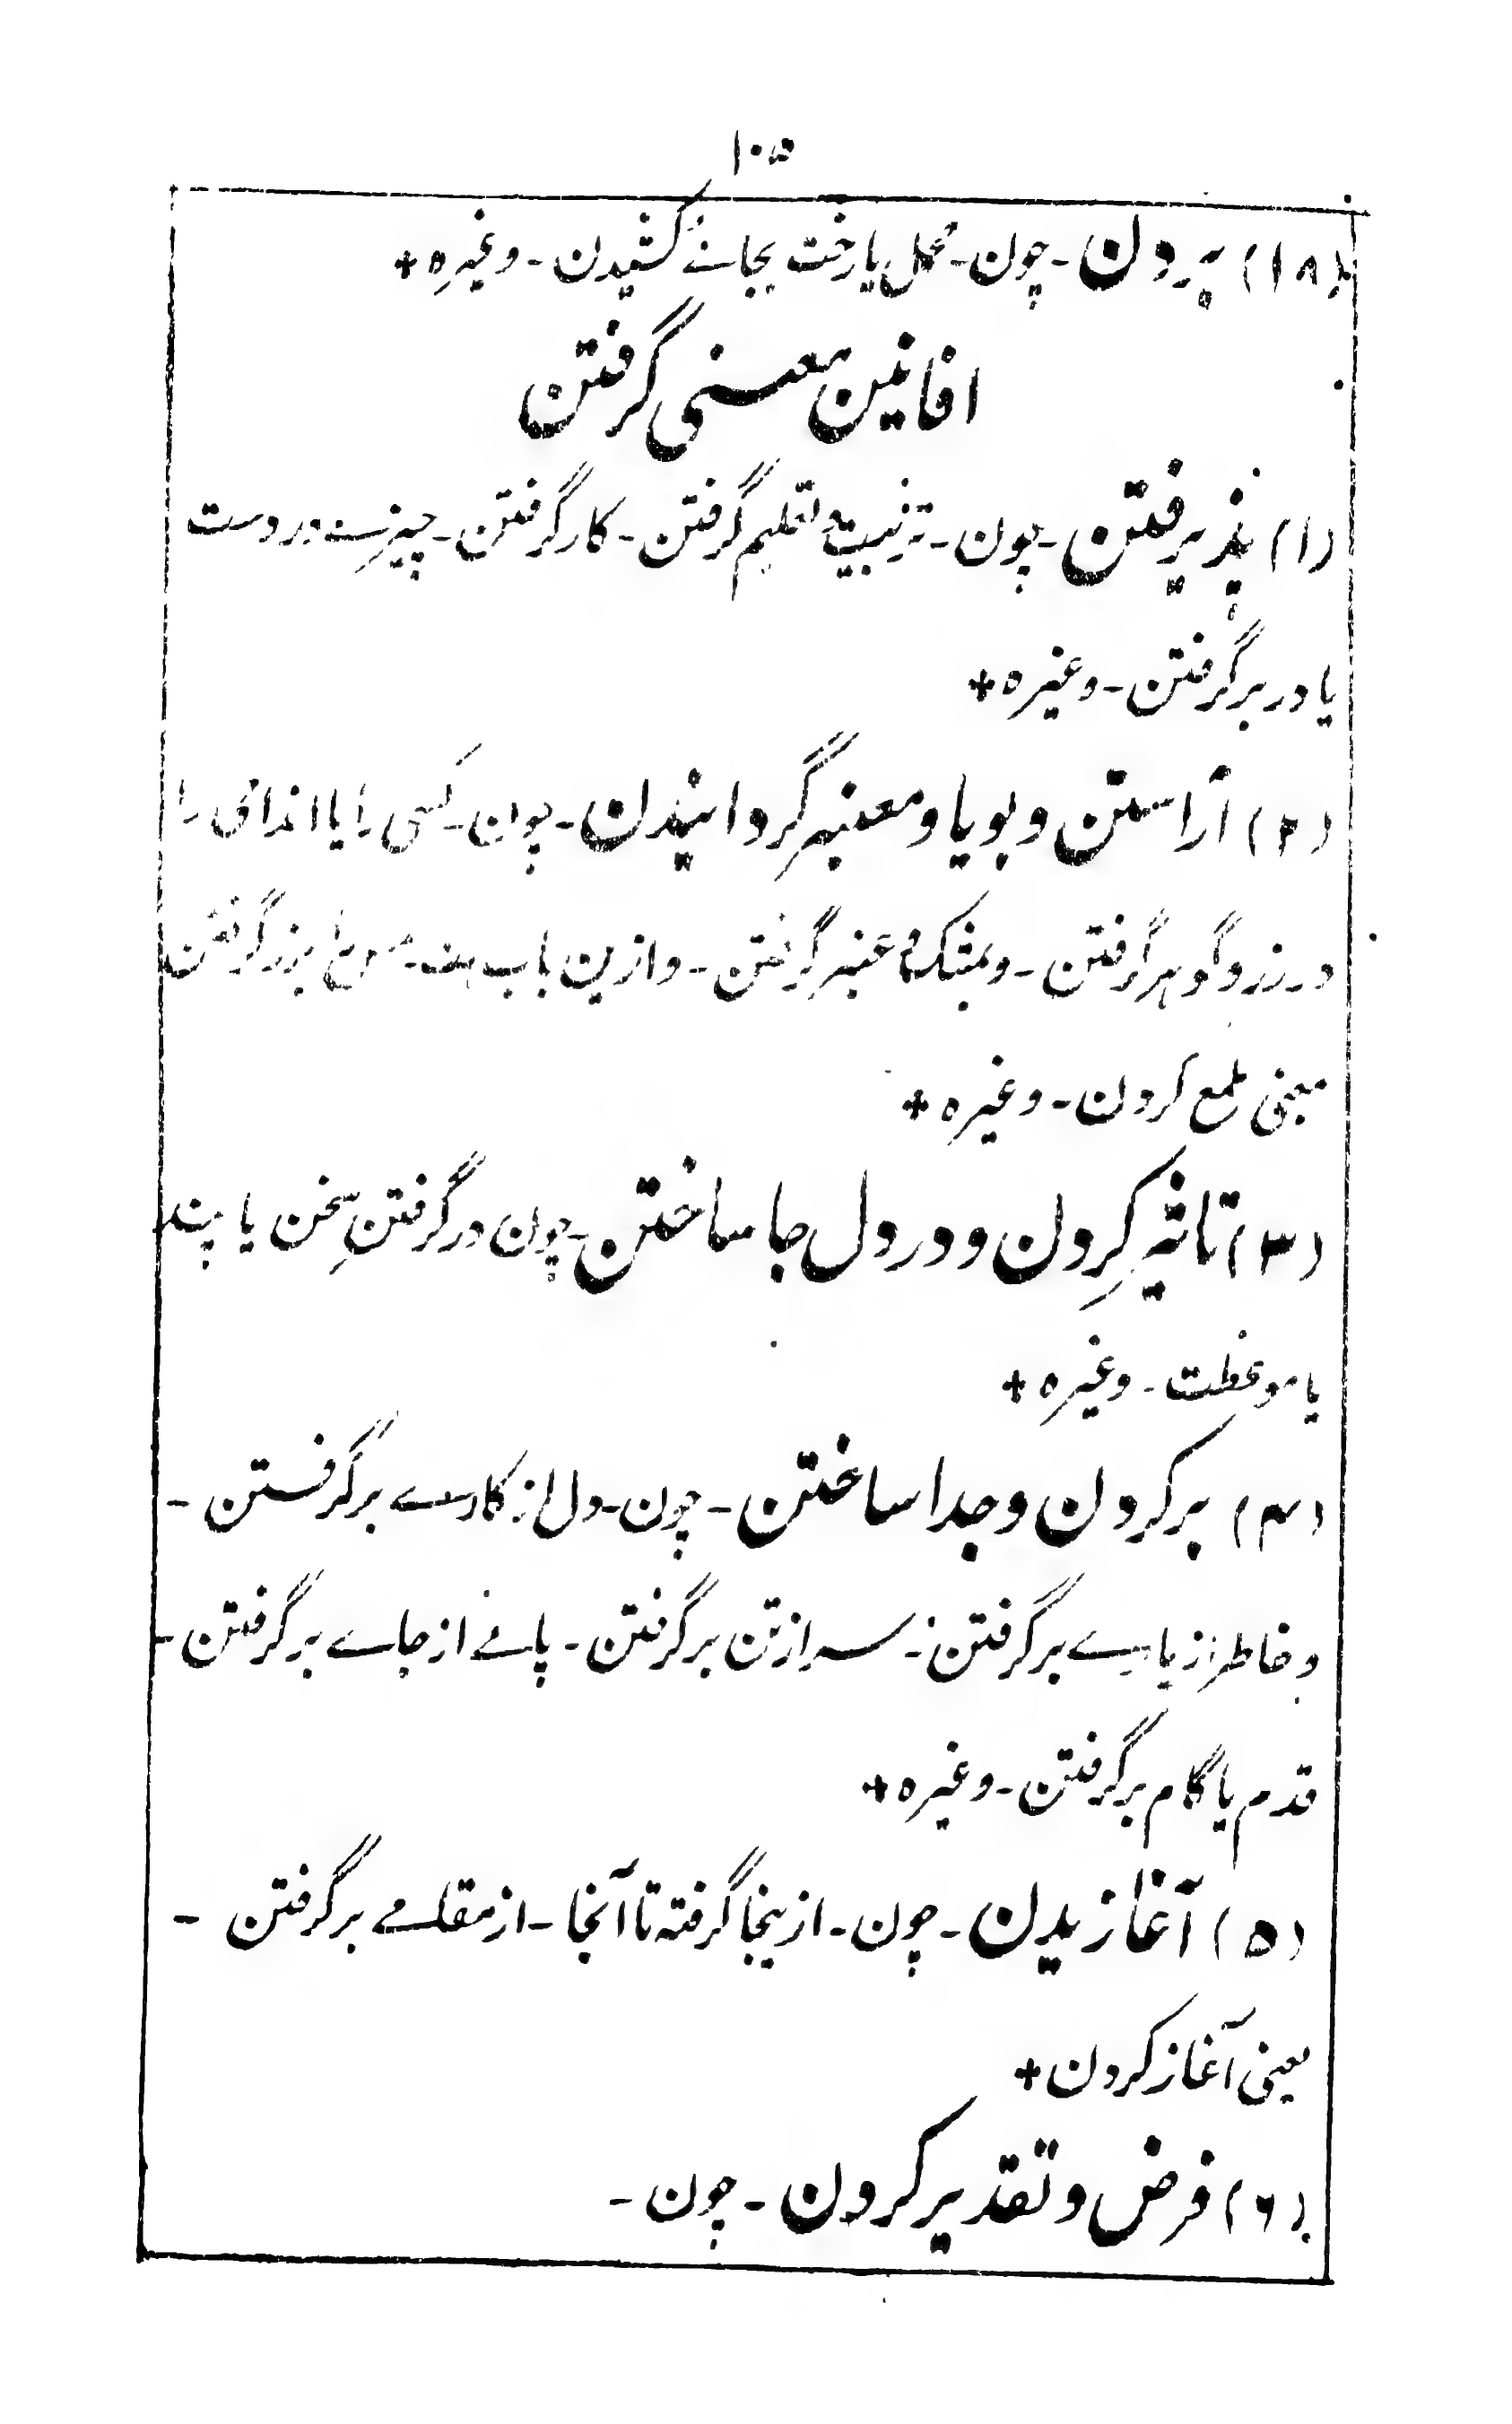 ۱۰۵
(۱۸) بردن - چون - محمل یا رخت بجائے کشیدن - وغیره +
افانین معنی گرفتن
(۱) پذیرفتن - چون - تربیت و تعلیم گرفتن - کار گرفتن - چیزے در دست
یا در بر گرفتن - وغیره +
(۲) آراستن و بویا و معنبر گردانیدن - چون - کسی را یا اندامی را
در زر و گوهر گرفتن - و بمشک و عنبر گرفتن - و ازین باب بزر گرفتن
بمعنی ملمع کردن - وغیره +
(۳) تاثیر کردن و در دل جا ساختن - چون در گرفتنِ سخن یا پند
یا موعظت - وغیره +
(۴) بر کردن و جدا ساختن - چون - دل از کارے برگرفتن -
و خاطر از یارے برگرفتن - سر از تن برگرفتن - پائے از جاے برگرفتن -
قدم یا گام برگرفتن - وغیره +
(۵) آغازیدن - چون - ازینجا گرفته تا آنجا - از مقامے برگرفتن -
یعنی آغاز کردن +
(۶) فرض و تقدیر کردن - چون -